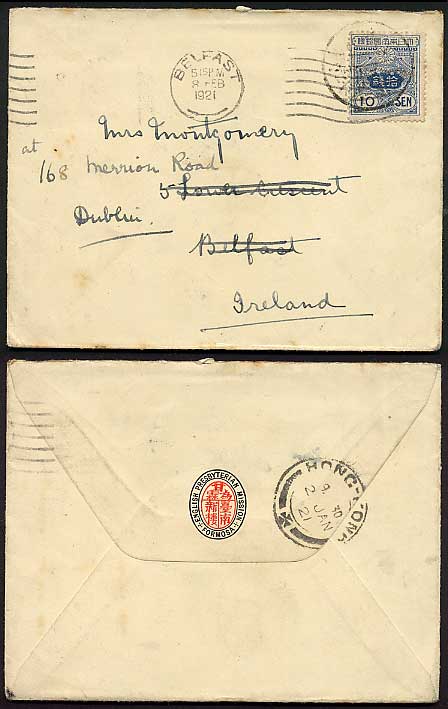 BELFAST
5 15 PM
8 FEB
1921
大日本帝國郵便
拾錢
10 SEN
Mrs Montgomery
at 168 Merrion Road
5 Lower Crescent
Dublin.
Belfast
Ireland
ENGLISH PRESBYTERIAN MISSION
FORMOSA
HONG-KONG
JAN
21